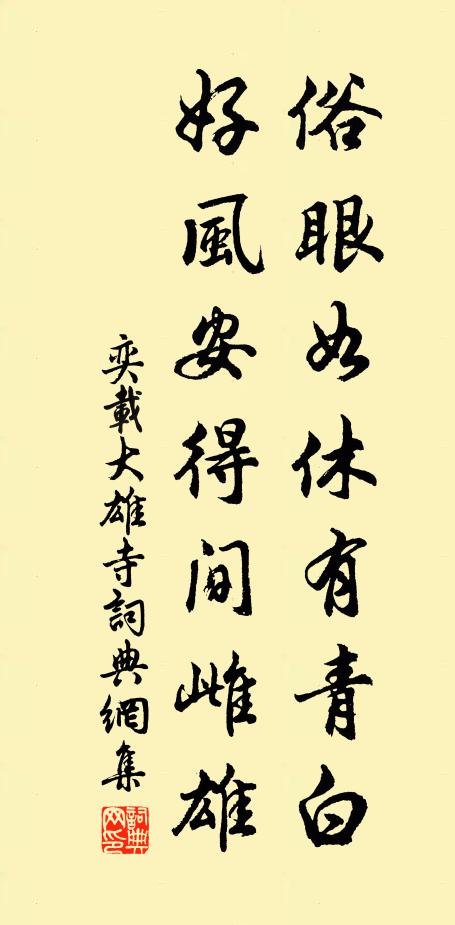 俗眼如休有青白
好風安得间雌雄
奕載大雄寺詞典網集
詞典網印